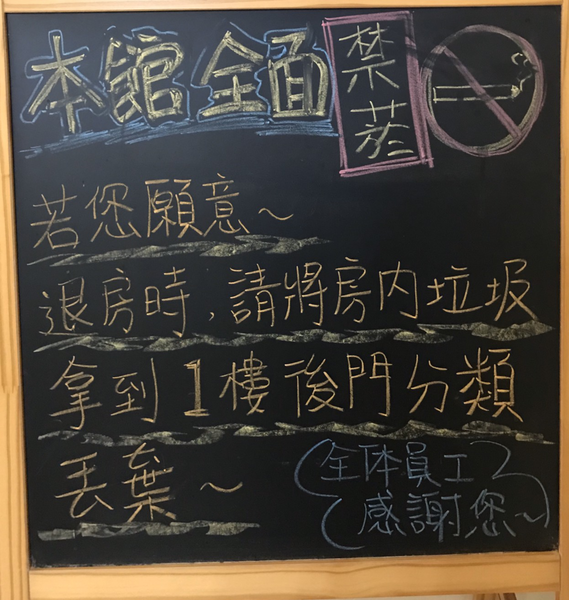 本館全面禁菸
若您願意~
退房時,請將房內垃圾
拿到1樓後門分類
丟棄~
全体員工
感謝您~